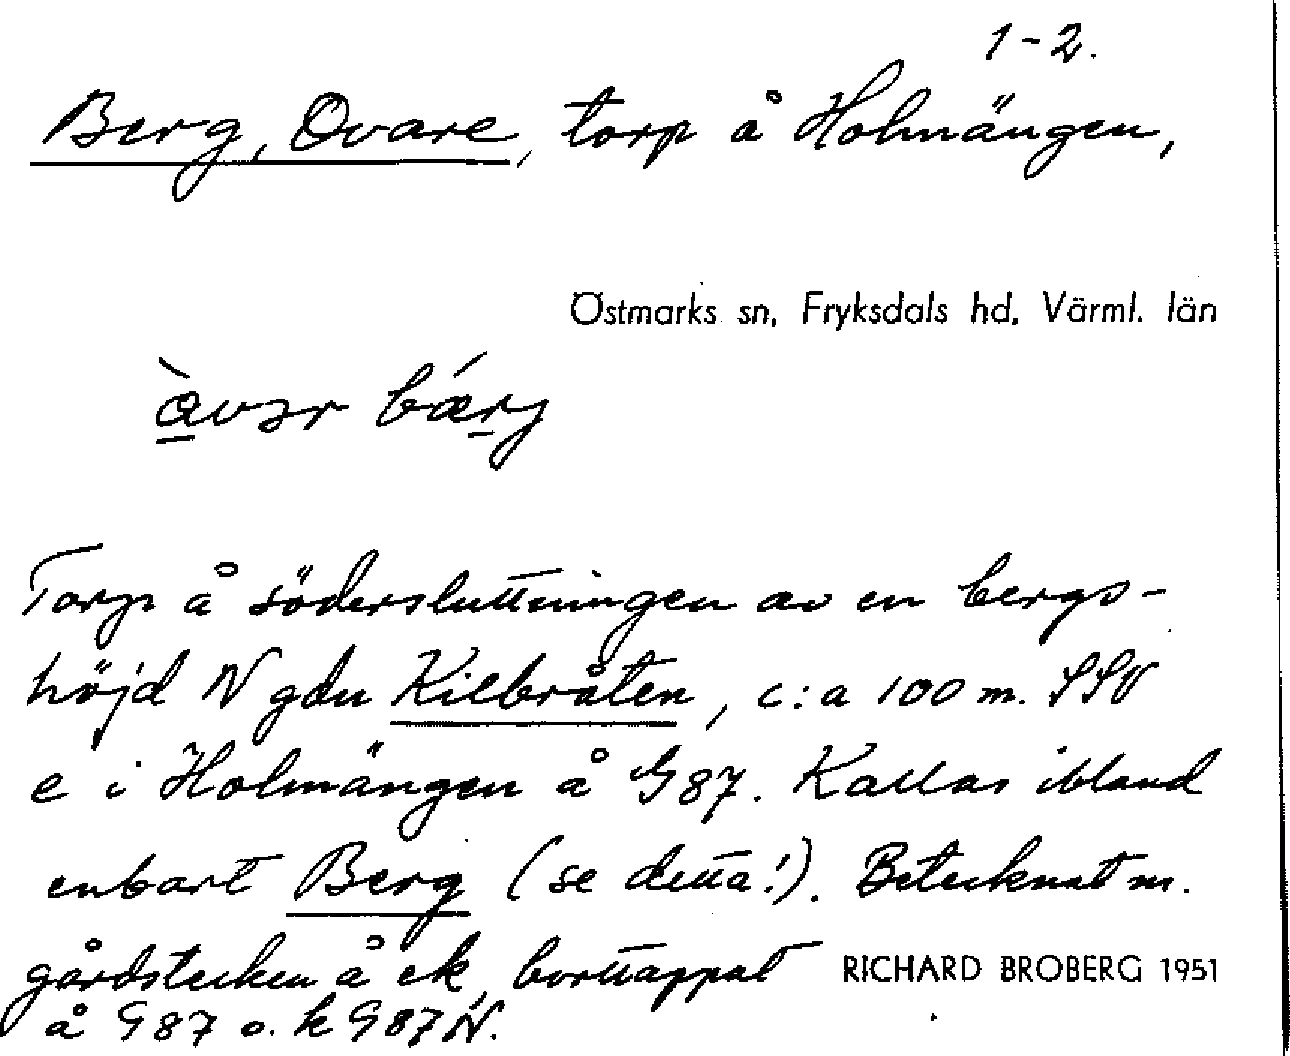 1-2.
Berg, Ovare, torp å Holmängen,
Östmarks sn, Fryksdals hd, Värml. län
àvər bǽrj
Torp å södersluttningen av en bergs-
höjd N gdn Kilbråten, c:a 100 m. SSV
e i Holmängen å G87. Kallas ibland
enbart Berg (se detta!). Betecknat m.
gårdstecken å ek, borttappat
å G87 o. k G87 N.
RICHARD BROBERG 1951